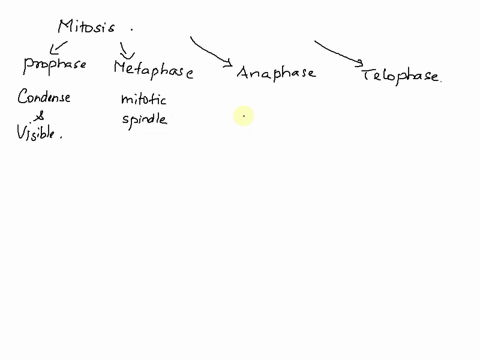 Mitosis .
Prophase Metaphase Anaphase Telophase.
Condense mitotic
& spindle
Visible.